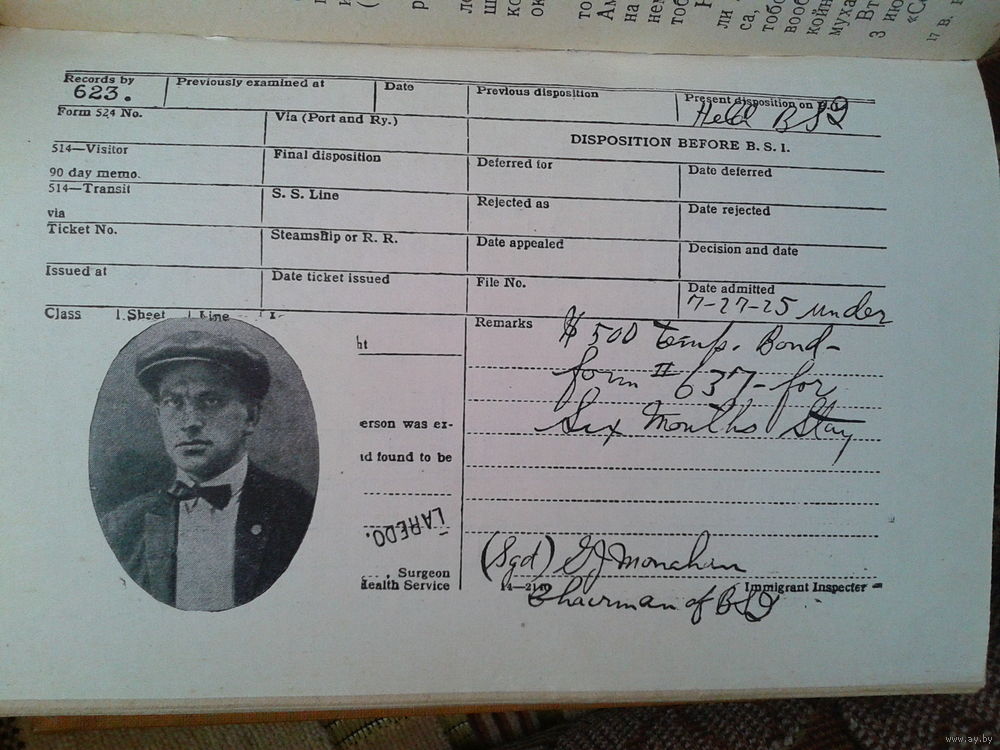 Records by
623.
Previously examined at
Date
Previous disposition
Present disposition on
Held BSI
Form 524 No.
Via (Port and Ry.)
DISPOSITION BEFORE B. S. I.
514—Visitor
90 day memo.
Final disposition
Deferred for
Date deferred
514—Transit
via
S. S. Line
Rejected as
Date rejected
Ticket No.
Steamship or R. R.
Date appealed
Decision and date
Issued at
Date ticket issued
File No.
Date admitted
7-27-25 under
Class
Sheet
Line
Remarks
$500 temp. Bond-
form II 637-for
Six Months Stay
ht
erson was ex-
id found to be
LAREDO.
, Surgeon
Health Service
(Sgd) G J Monahan
14—21
Immigrant Inspecter
Chairman of BSI
17 В.
www.ay.by